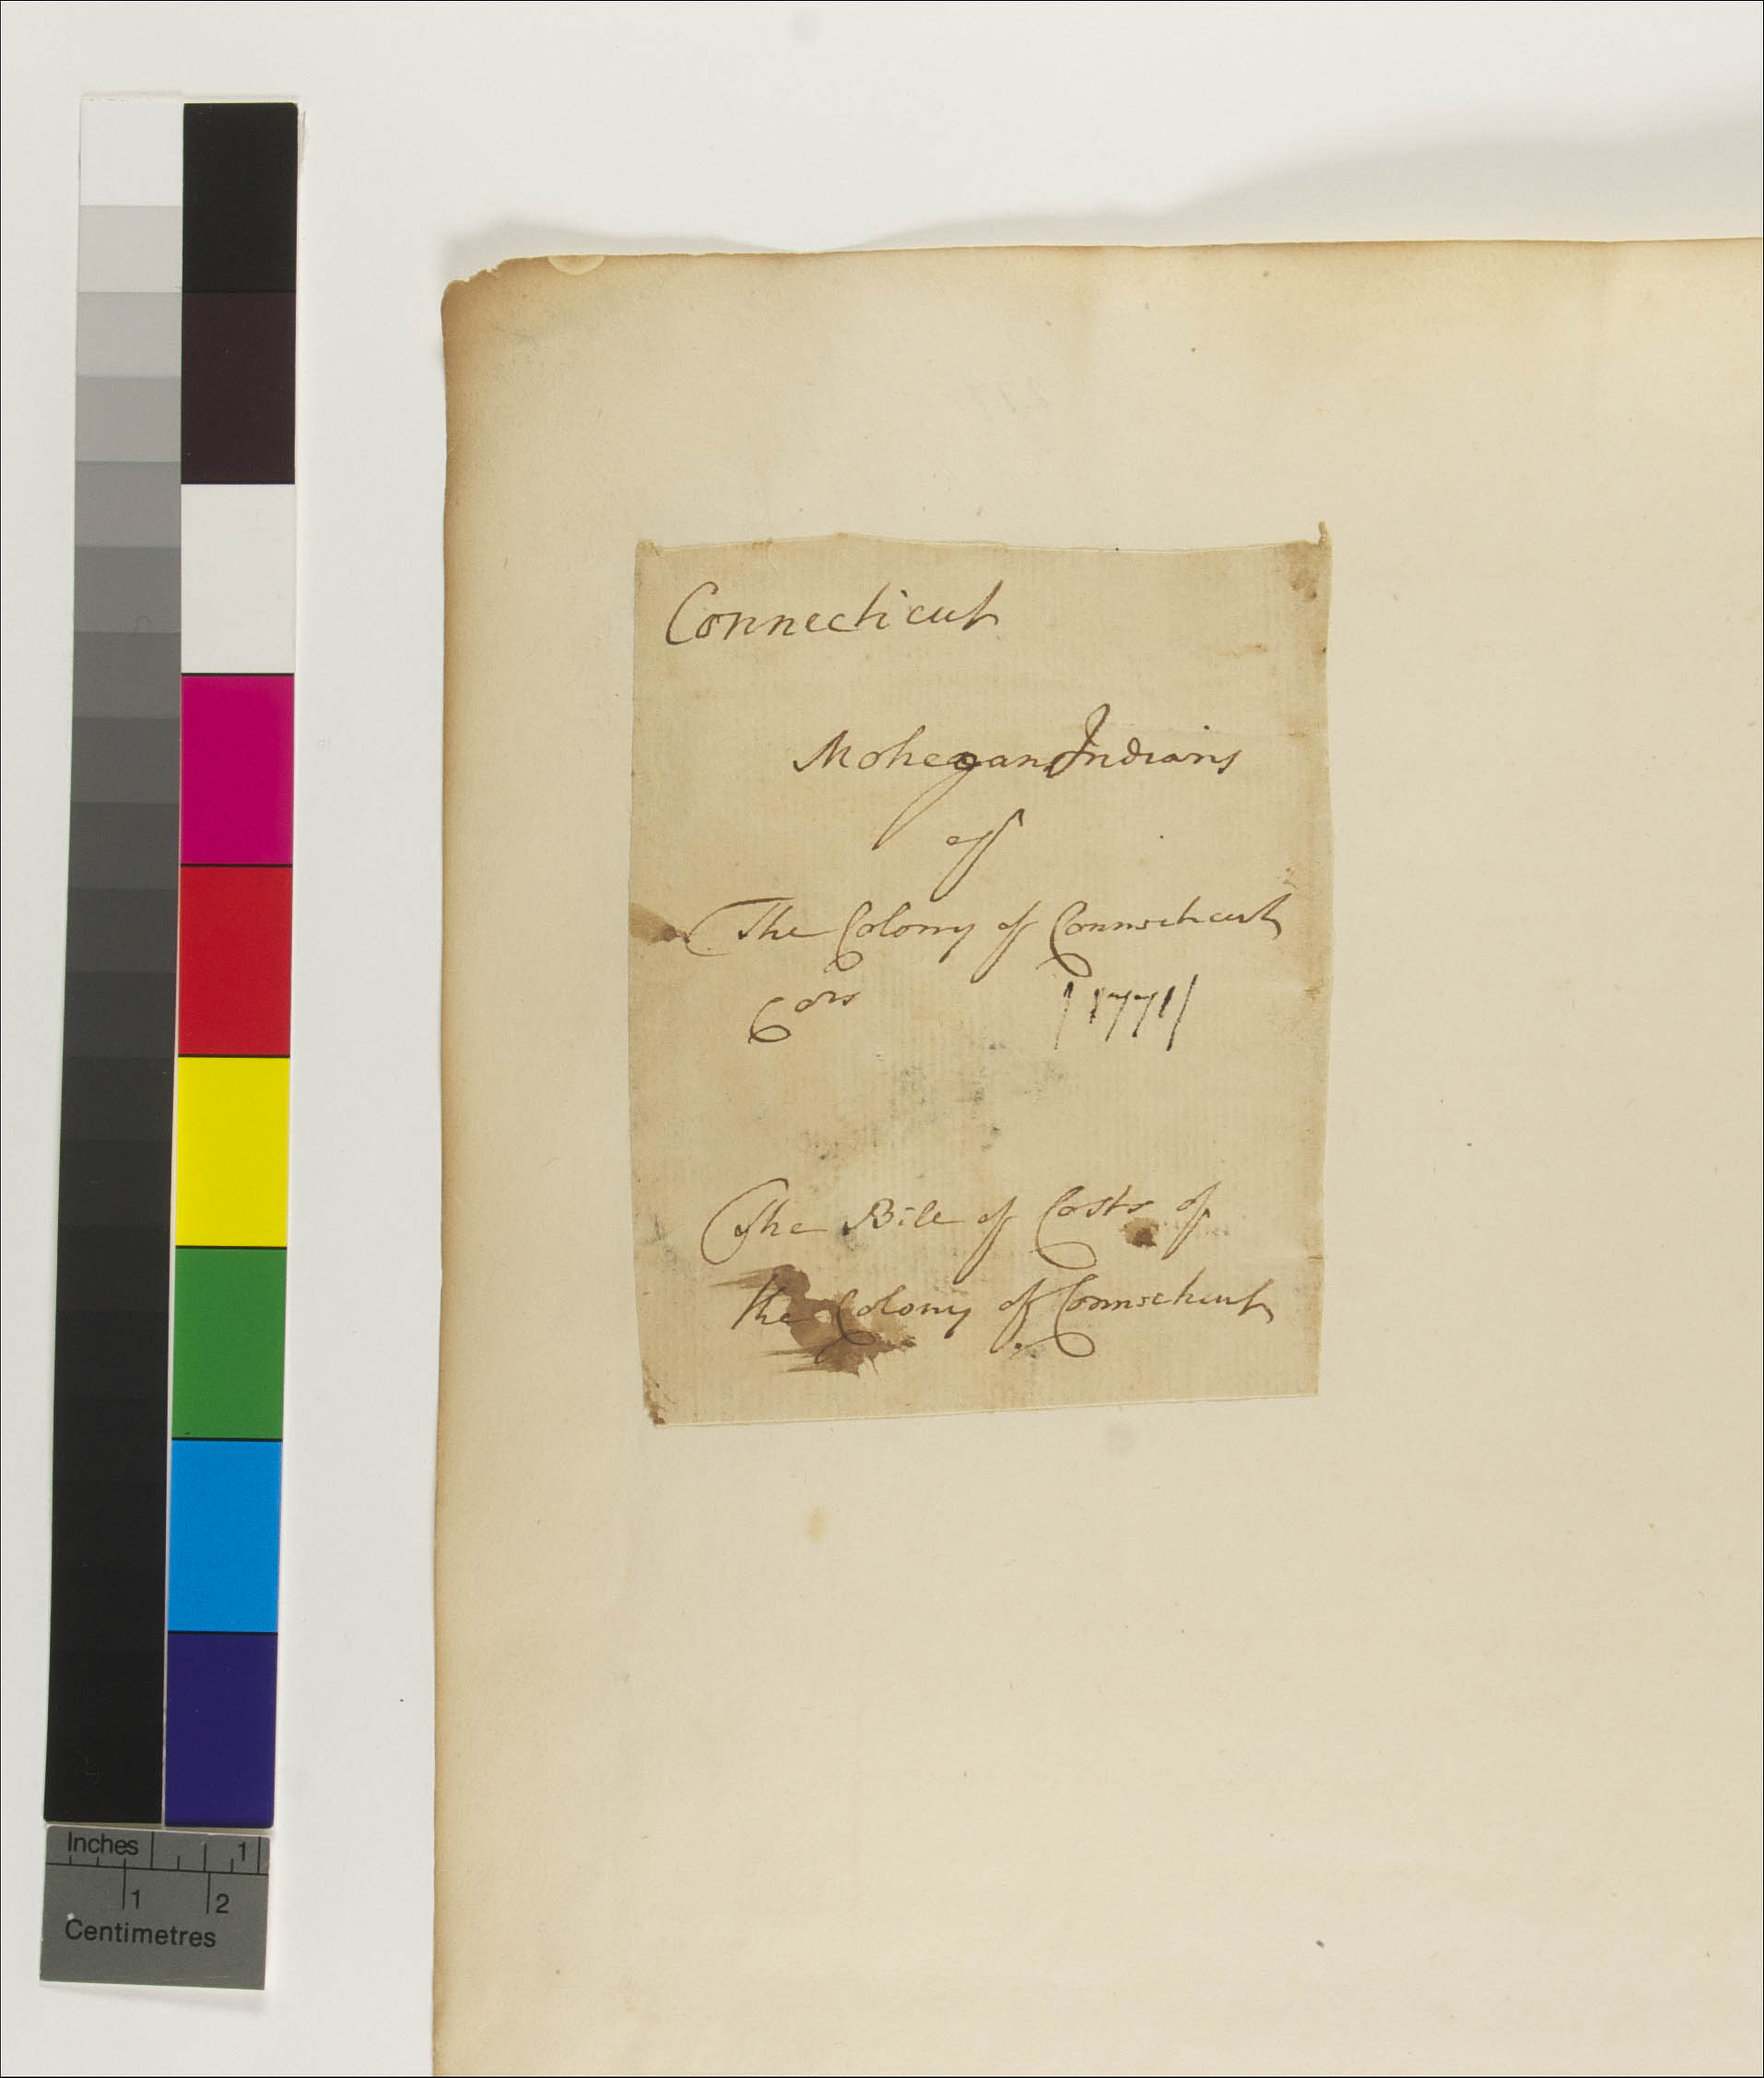 Connecticut
Mohegan Indians
agt
The Colony of Connecticut
|1771|
The Bill of Costs of
the Colony of Connecticut
Inches 1
1 2
Centimetres